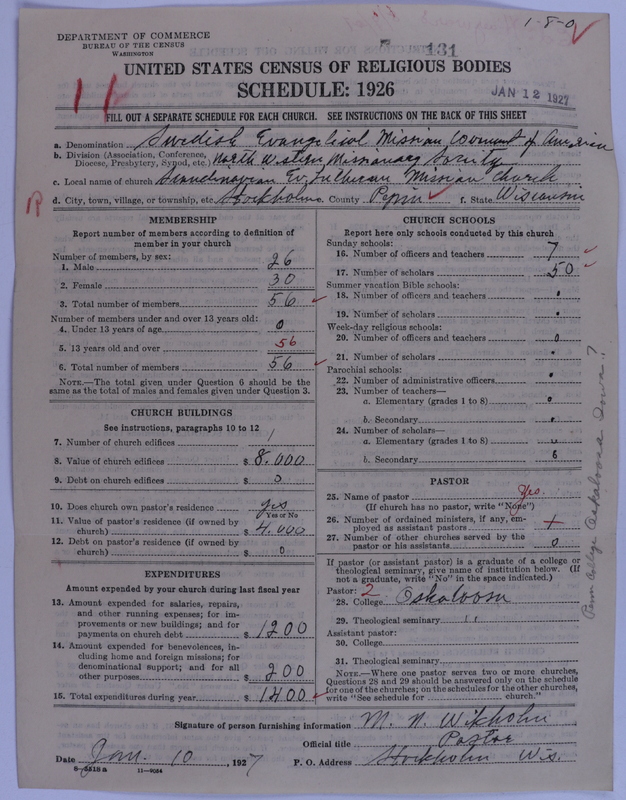 1-8-0
DEPARTMENT OF COMMERCE
BUREAU OF THE CENSUS
WASHINGTON
131
UNITED STATES CENSUS OF RELIGIOUS BODIES
SCHEDULE: 1926
JAN 12 1927
FILL OUT A SEPARATE SCHEDULE FOR EACH CHURCH. SEE INSTRUCTIONS ON THE BACK OF THIS SHEET
a. Denomination Swedish Evangelical Mission Covenant of America
b. Division (Association, Conference, Diocese, Presbytery, Synod, etc.) North Western Missionary Society
c. Local name of church Scandinavian Ev. Lutheran Mission Church
d. City, town, village, or township, etc. Stockholm e. County Pepin f. State Wisconsin
MEMBERSHIP
Report number of members according to definition of
member in your church
Number of members, by sex:
1. Male 26
2. Female 30
3. Total number of members 56
Number of members under and over 13 years old:
4. Under 13 years of age 0
5. 13 years old and over 56
6. Total number of members 56
NOTE.—The total given under Question 6 should be the
same as the total of males and females given under Question 3.
CHURCH BUILDINGS
See instructions, paragraphs 10 to 12
7. Number of church edifices 1
8. Value of church edifices $ 8.000
9. Debt on church edifices $ 0
10. Does church own pastor's residence yes
Yes or No
11. Value of pastor's residence (if owned by
church) $ 4.000
12. Debt on pastor's residence (if owned by
church) $ 0
EXPENDITURES
Amount expended by your church during last fiscal year
13. Amount expended for salaries, repairs,
and other running expenses; for im-
provements or new buildings; and for
payments on church debt $ 1200
14. Amount expended for benevolences, in-
cluding home and foreign missions; for
denominational support; and for all
other purposes $ 200
15. Total expenditures during year $ 1400
CHURCH SCHOOLS
Report here only schools conducted by this church
Sunday schools:
16. Number of officers and teachers 7
17. Number of scholars 50
Summer vacation Bible schools:
18. Number of officers and teachers
19. Number of scholars
Week-day religious schools:
20. Number of officers and teachers 0
21. Number of scholars
Parochial schools:
22. Number of administrative officers
23. Number of teachers—
a. Elementary (grades 1 to 8)
b. Secondary
24. Number of scholars—
a. Elementary (grades 1 to 8)
b. Secondary
PASTOR
25. Name of pastor Yes.
(If church has no pastor, write "None")
26. Number of ordained ministers, if any, em-
ployed as assistant pastors
27. Number of other churches served by the
pastor or his assistants 0
If pastor (or assistant pastor) is a graduate of a college or
theological seminary, give name of institution below. (If
not a graduate, write "No" in the space indicated.)
Pastor: 2
28. College Oskaloosa
29. Theological seminary "
Assistant pastor:
30. College
31. Theological seminary
NOTE.—Where one pastor serves two or more churches,
Questions 28 and 29 should be answered only on the schedule
for one of the churches; on the schedules for the other churches,
write "See schedule for church."
Penn College Oskaloosa Iowa?
Signature of person furnishing information M. N. Wikholm
Official title Pastor
Date Jan. 10, 1927 P. O. Address Stockholm Wis.
8-5515a 11-9084